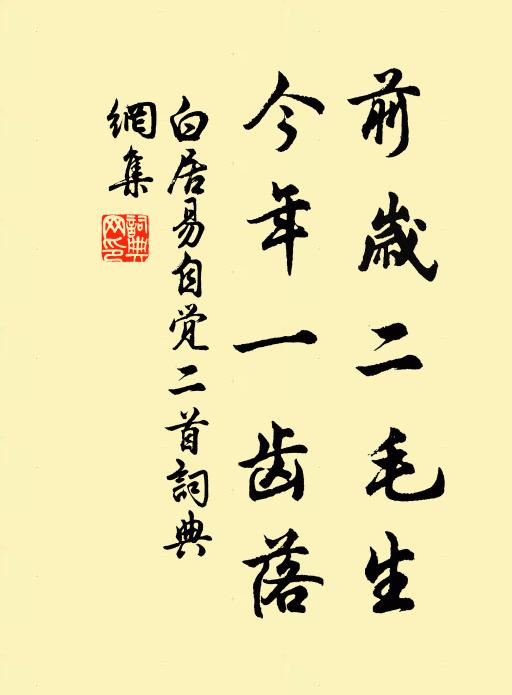 前歲二毛生
今年一齿落
白居易自觉二首詞典
網集
詞典网印